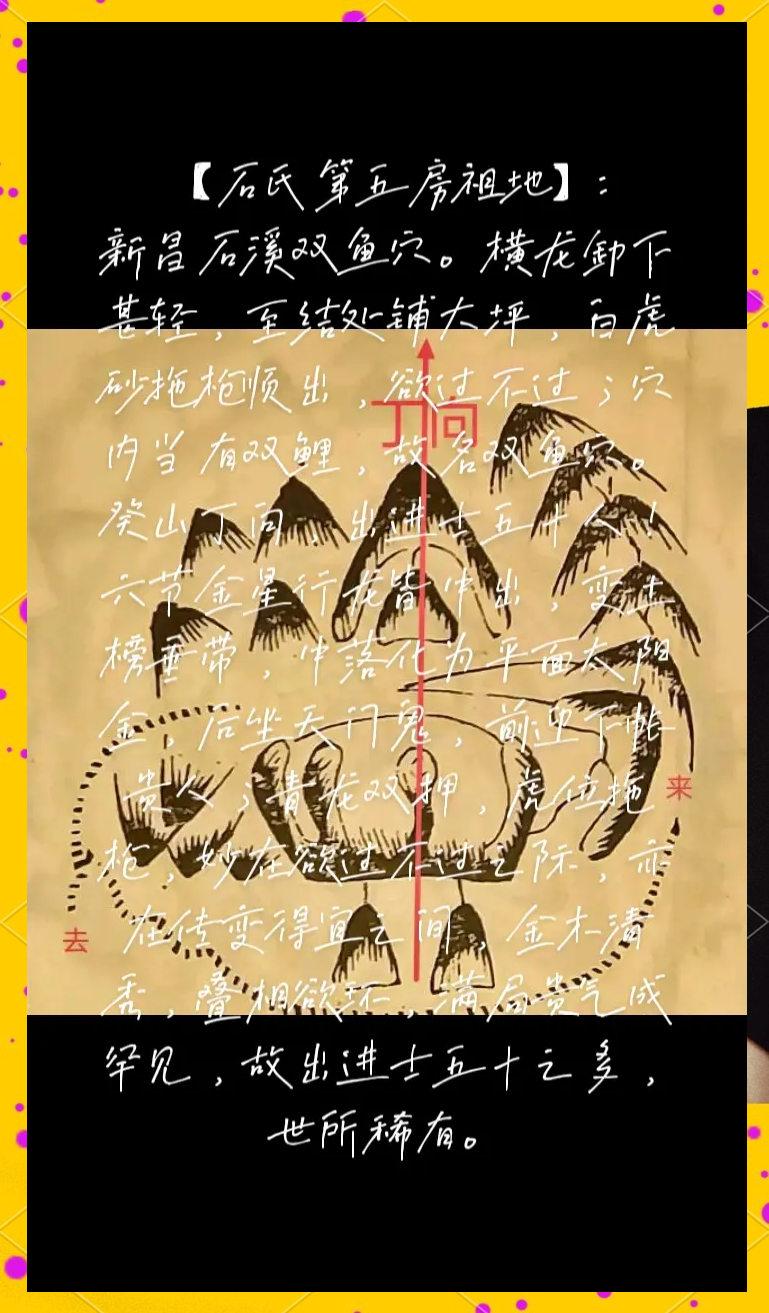 【石氏第五房祖地】：
新昌石溪双鱼穴。横龙卸下
甚轻，至结处铺大坪，白虎
砂拖枪顺出，欲过不过；穴
内当有双鲤，故名双鱼穴。
癸山丁向，出进士五十人！
六节金星行龙皆中出，变土
榜垂带，中落化为平面太阳
金，后坐天门鬼，前迎下帐
贵人；青龙双押，虎位拖
枪，妙在欲过不过之际，亦
在传变得宜之间，金木清
秀，叠相欲环，满局贵气成
罕见，故出进士五十之多，
世所稀有。
丁向
来
去